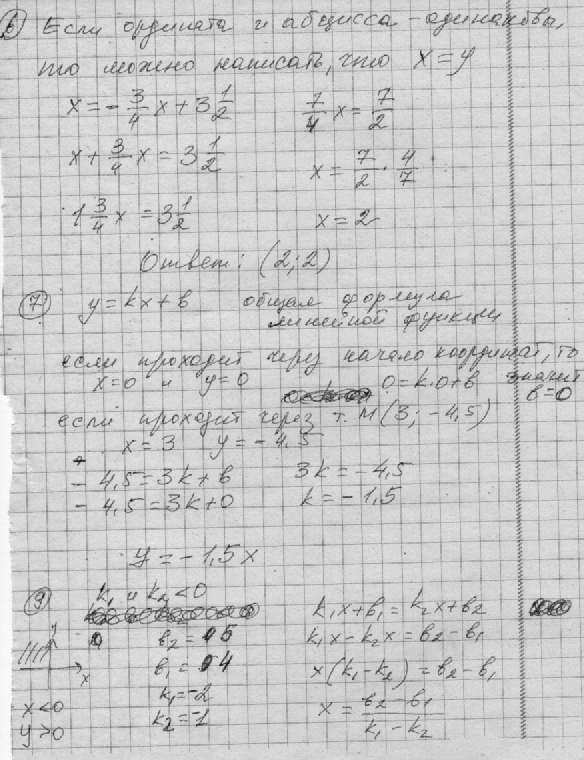 6 Если ордината и абцисса - одинаковы,
то можно написать, что x = y
x = - 3/4 x + 3 1/2
7/4 x = 7/2
x + 3/4 x = 3 1/2
x = 7/2 · 4/7
1 3/4 x = 3 1/2
x = 2
Ответ: (2; 2)
7 y = kx + b общая формула
линейной функции
если проходит через начало координат, то
x = 0 и y = 0 0 = k·0 + b значит
b = 0
если проходит через т. M (3; -4,5)
x = 3 y = -4,5
- 4,5 = 3k + b 3k = -4,5
- 4,5 = 3k + 0 k = -1,5
y = -1,5x
9 k₁ и k₂ < 0
k₁x + b₁ = k₂x + b₂
b₂ = 5
k₁x - k₂x = b₂ - b₁
b₁ = 4
x (k₁ - k₂) = b₂ - b₁
x
k₁ = -2
x < 0
k₂ = -1
x = b₂ - b₁ / k₁ - k₂
y > 0